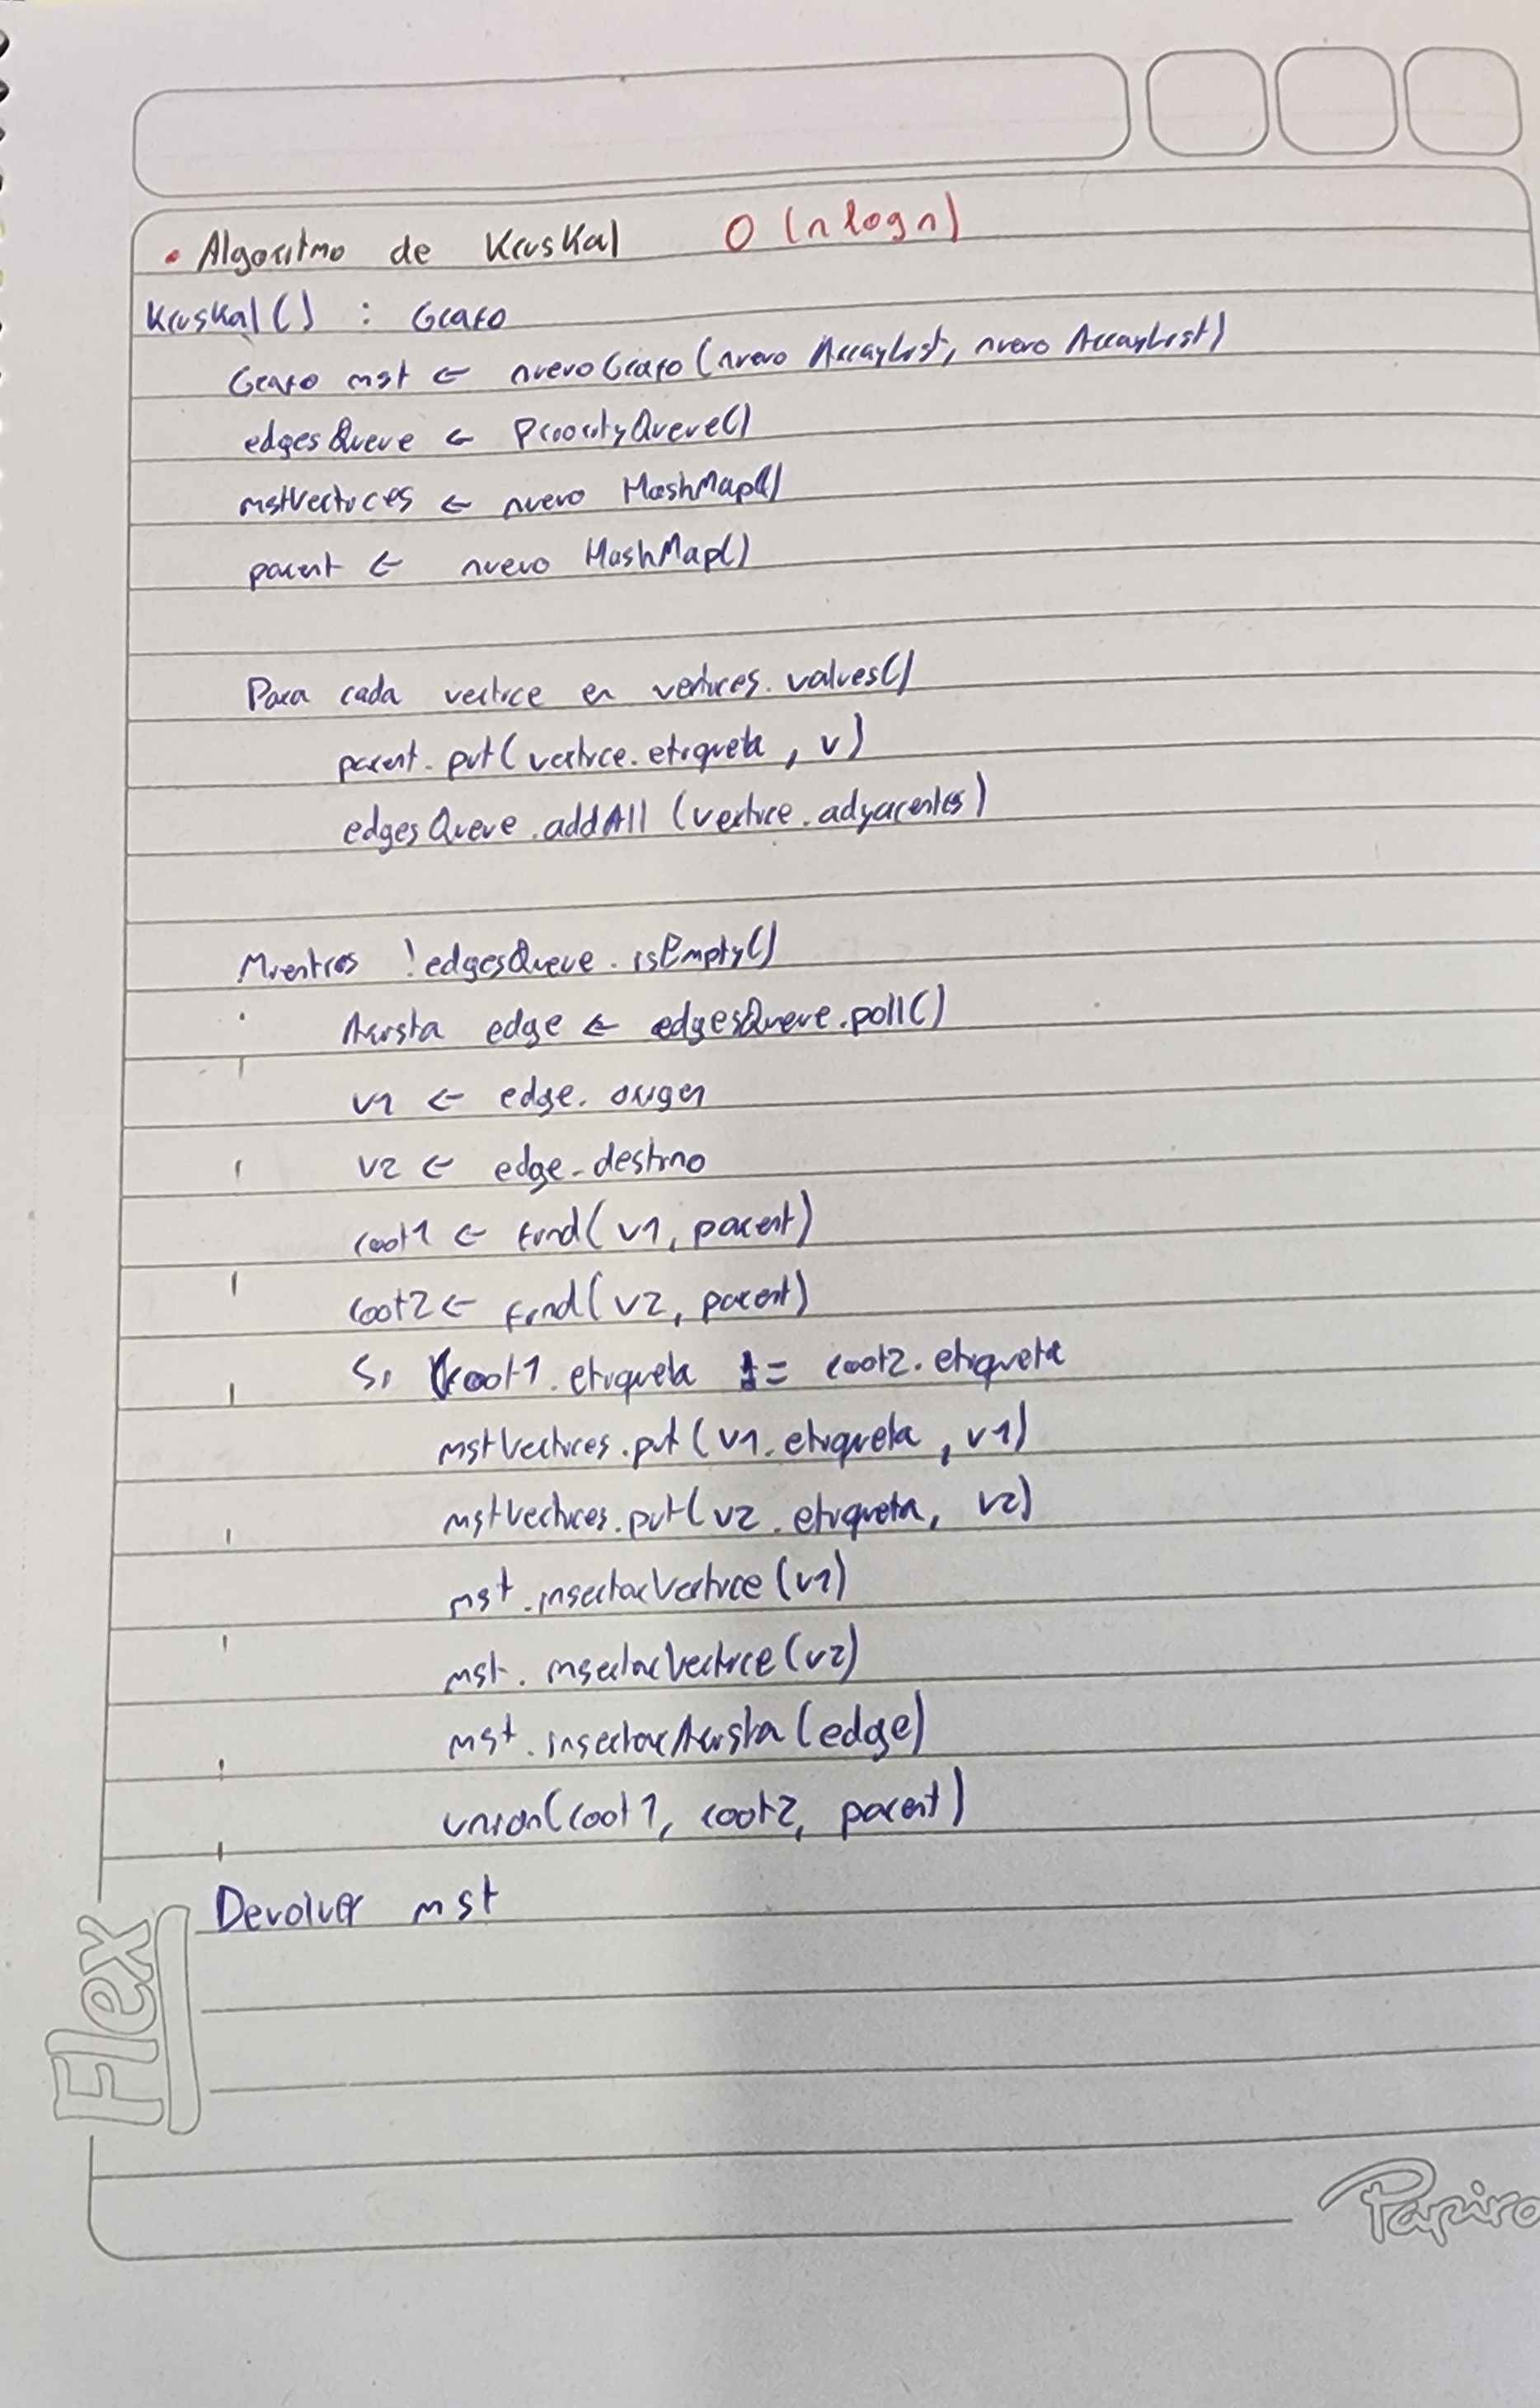 • Algoritmo de Kruskal O(n log n)
Kruskal() : Grafo
Grafo mst ← nuevo Grafo (nuevo ArrayList, nuevo ArrayList)
edgesQueue ← PriorityQueue()
mstVertices ← nuevo HashMap()
parent ← nuevo HashMap()
Para cada vertice en vertices.values()
parent.put(vertice.etiqueta, v)
edgesQueue.addAll(vertice.adyacentes)
Mientras !edgesQueue.isEmpty()
Arista edge ← edgesQueue.poll()
v1 ← edge.origen
v2 ← edge.destino
root1 ← find(v1, parent)
root2 ← find(v2, parent)
Si root1.etiqueta != root2.etiqueta
mstVertices.put(v1.etiqueta, v1)
mstVertices.put(v2.etiqueta, v2)
mst.insertarVertice(v1)
mst.insertarVertice(v2)
mst.insertarArista(edge)
union(root1, root2, parent)
Devolver mst
Flex
Papiro